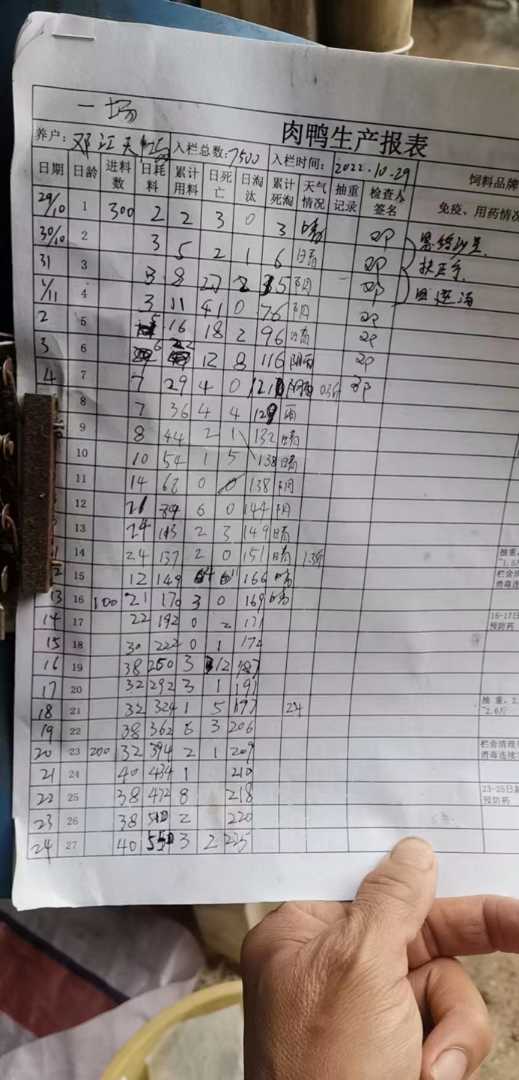 一场
肉鸭生产报表
养户: 邓江天 入栏总数: 7500 入栏时间: 2022.10.29 饲料品牌
日期 日龄 进料数 日耗料 累计用料 日死亡 日淘汰 累计死淘 天气情况 抽重记录 检查人签名 免疫、用药情况
29/10 1 300 2 2 3 0 3 晴 邓
30/10 2 3 5 2 1 6 晴 邓
31 3 3 8 27 2 35 阴 邓
1/11 4 3 11 41 0 76 阴 邓
2 5 5 16 18 2 96 晴 邓
3 6 6 22 12 8 116 阴雨 邓
4 7 7 29 4 0 120 阴雨 邓
8 7 36 4 4 128 雨
9 8 44 2 1 132 晴
10 10 54 1 5 138 晴
11 14 68 0 0 138 阴
12 21 89 6 0 144 阴
13 24 113 2 3 149 晴
14 24 137 2 0 151 晴 抽重
15 12 149 166 晴 栏舍
13 16 100 21 170 3 0 169 晴
14 17 22 192 0 2 171 16-17日
预防药
15 18 30 222 0 1 172
16 19 38 250 3 12 187
17 20 32 292 3 1 191
18 21 32 324 1 5 197 24 抽重
19 22 38 362 6 3 206
20 23 200 32 394 2 1 209 栏舍
21 24 40 434 1 210
22 25 38 472 8 218 23-25日
预防药
23 26 38 510 2 220
24 27 40 550 3 2 225